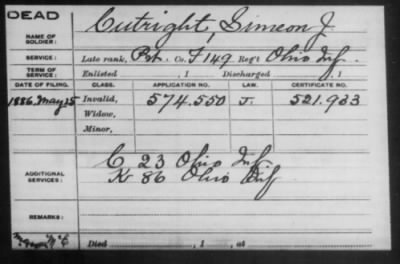 DEAD
NAME OF SOLDIER: Cutright, Simeon J.
SERVICE: Late rank, Pvt. Co. F 149 Reg't Ohio Inf.
TERM OF SERVICE: Enlisted , 1 Discharged , 1
DATE OF FILING. CLASS. APPLICATION NO. LAW. CERTIFICATE NO.
1886, May 25 Invalid, 574.550 J. 521.933
Widow,
Minor,
ADDITIONAL SERVICES: C 23 Ohio Inf
K 86 Ohio Inf
REMARKS:
Died , 1 , at